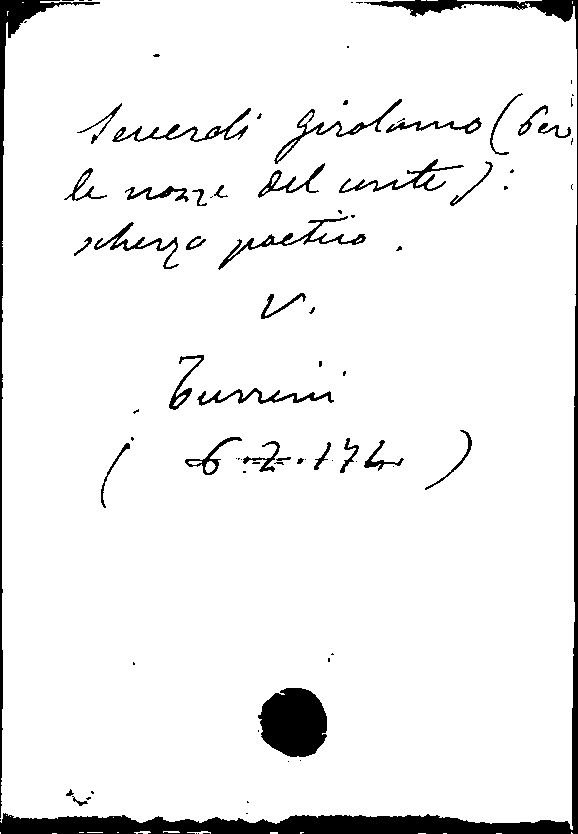 Severoli Girolamo (Per
le nozze del conte):
scherzo poetico.
V.
Turrini
( 6.Z.174 )